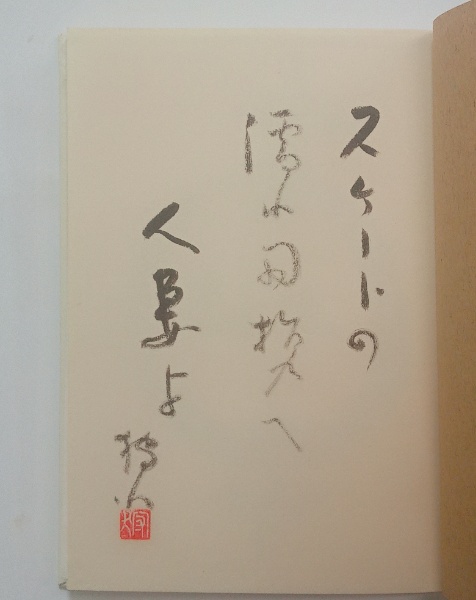 スケートの
濡れ刃携へ
人妻よ
狩行